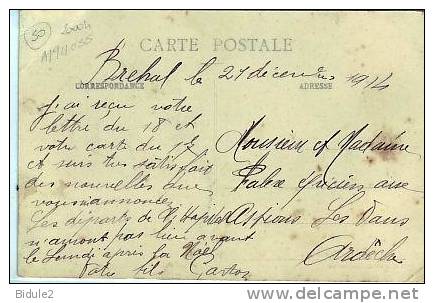 50
CARTE POSTALE
Brehal le 21 décembre 1914
CORRESPONDANCE
ADRESSE
j'ai reçu votre
lettre du 18 et
votre carte du 17
et suis très satisfait
des nouvelles que
vous m'annoncez
Les départs de l'hôpital
n'auront pas lieu avant
le Lundi après la Noël
Votre fils Gaston
Monsieur et Madame
épicier aux
Assions Les Vans
Ardèche
Bidule2
delcampe.net